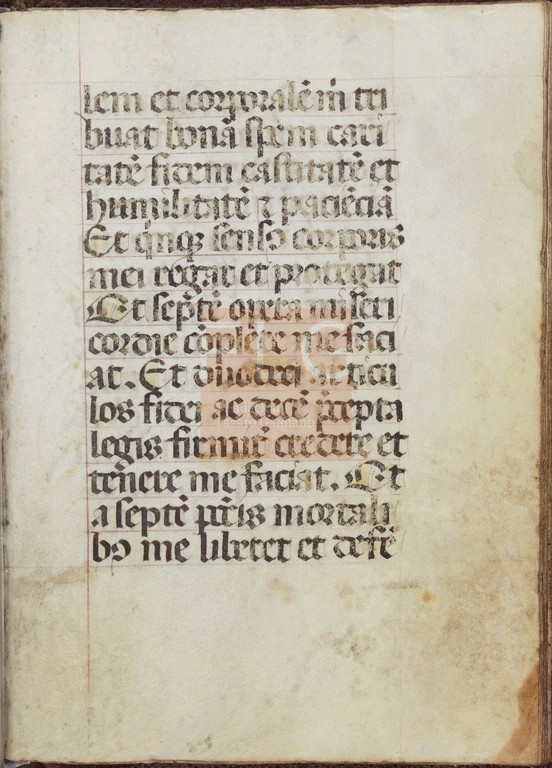 lem et corporalē m̄ tri
buat bonā spem cari
tatē fidem castitatē et
humilitatē ⁊ paciēciā
Et qinqꝫ senſꝰ corporis
mei regat et protegat
Et septē opera miſeri
cordie cōplere me faci
at. Et duodeci articu
los fidei ac decē p̄cepta
legis firmit̄ credere et
tenere me faciat. Et
a septē p̄c̄is mortali
bꝰ me liberet et defē